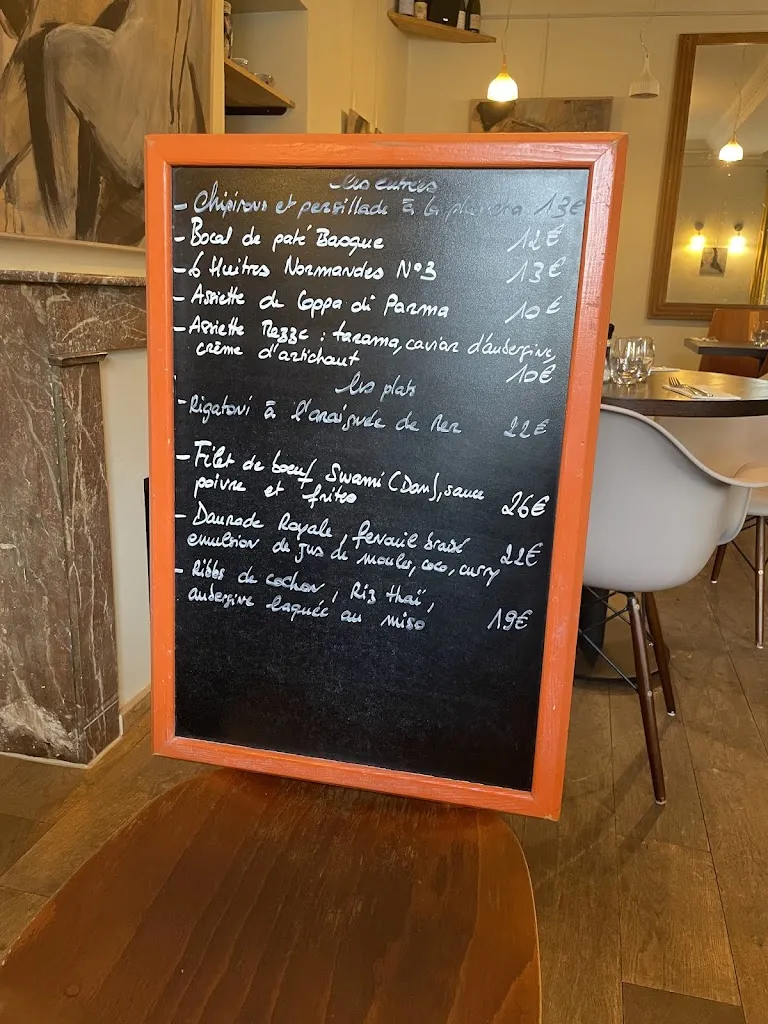 les entrées
- Chipirons et persillade à la plancha 13€
- Bocal de paté Basque 12€
- 6 Huitres Normandes N°3 13€
- Assiette de Coppa di Parma 10€
- Assiette Mezze : tarama, caviar d'aubergine,
crème d'artichaut 10€
les plats
- Rigatoni à l'araignée de Mer 22€
- Filet de boeuf Swami (Dom), sauce
poivre et frites 26€
- Daurade Royale, fenouil braisé
emulsion de jus de moules, coco, curry 22€
- Ribbs de cochon, Riz thaï,
aubergine laquée au miso 19€